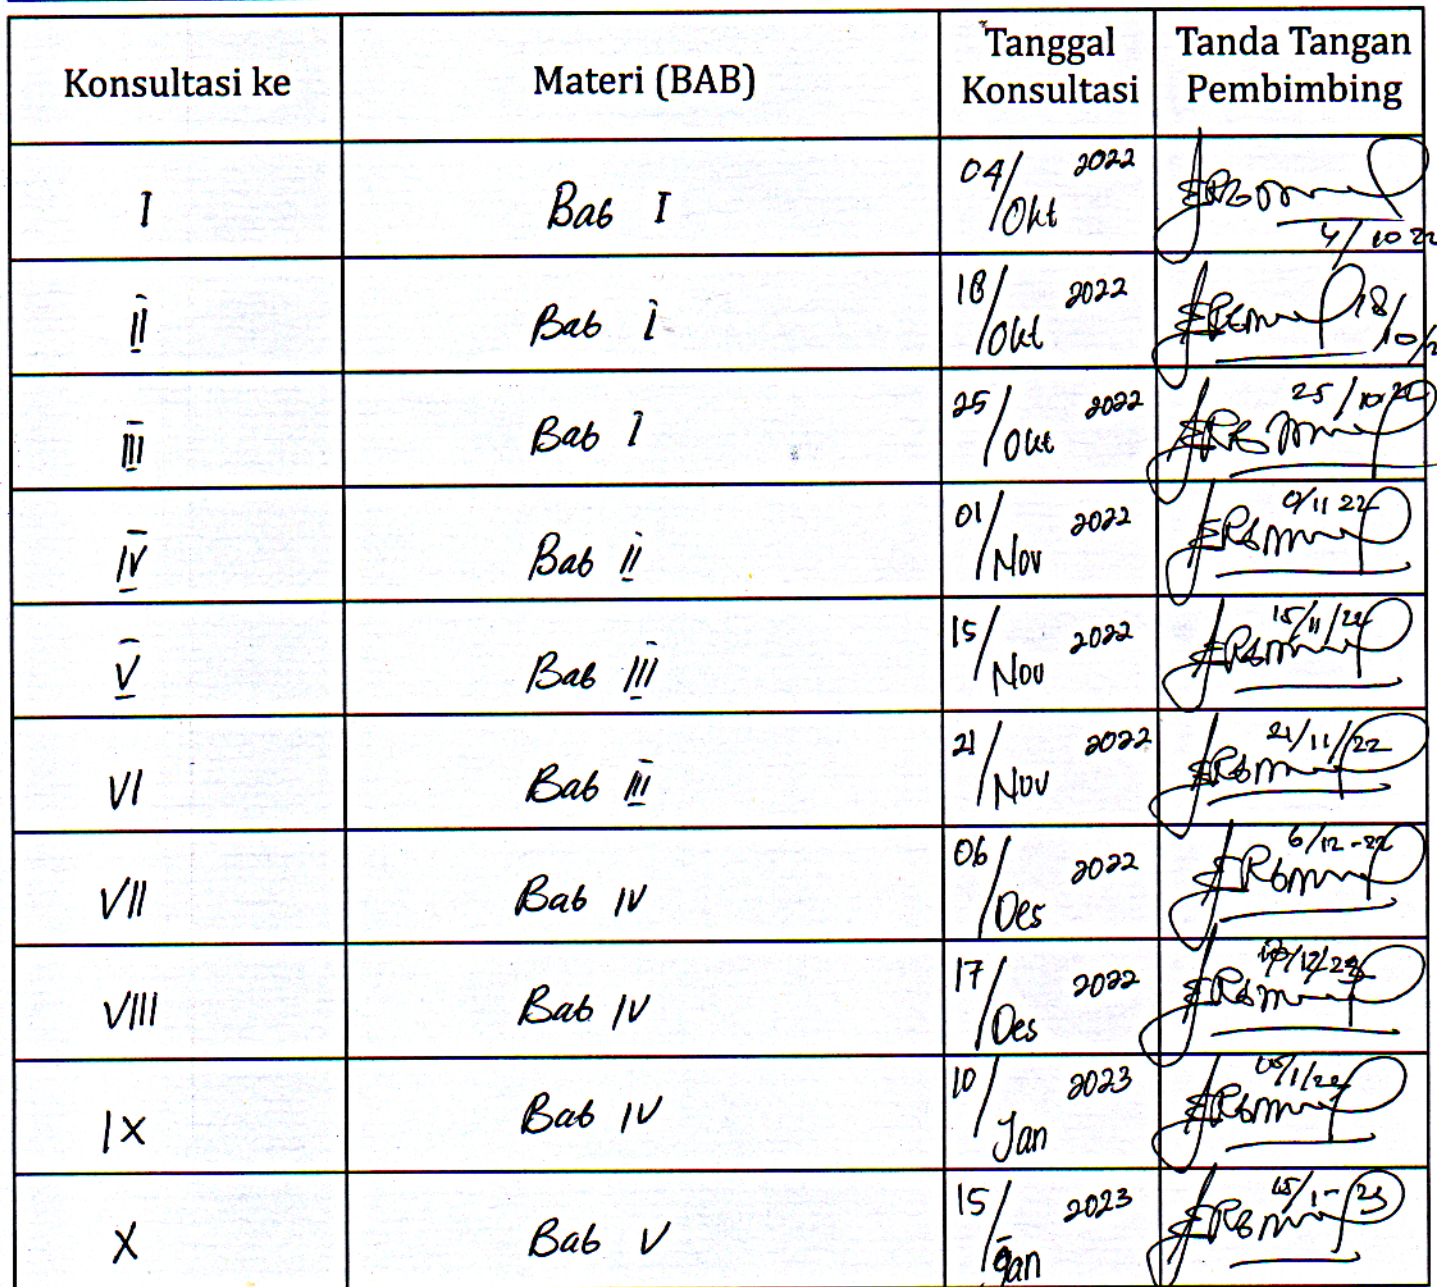 Konsultasi ke Materi (BAB) Tanggal Konsultasi Tanda Tangan Pembimbing
I Bab I 04/Okt 2022 4/10 22
II Bab I 18/Okt 2022 18/10/2
III Bab I 25/Okt 2022 25/10/22
IV Bab II 01/Nov 2022 /11 22
V Bab III 15/Nov 2022 15/11/22
VI Bab III 21/Nov 2022 21/11/22
VII Bab IV 06/Des 2022 6/12-22
VIII Bab IV 17/Des 2022
IX Bab IV 10/Jan 2023
X Bab V 15/Jan 2023 15/1-23